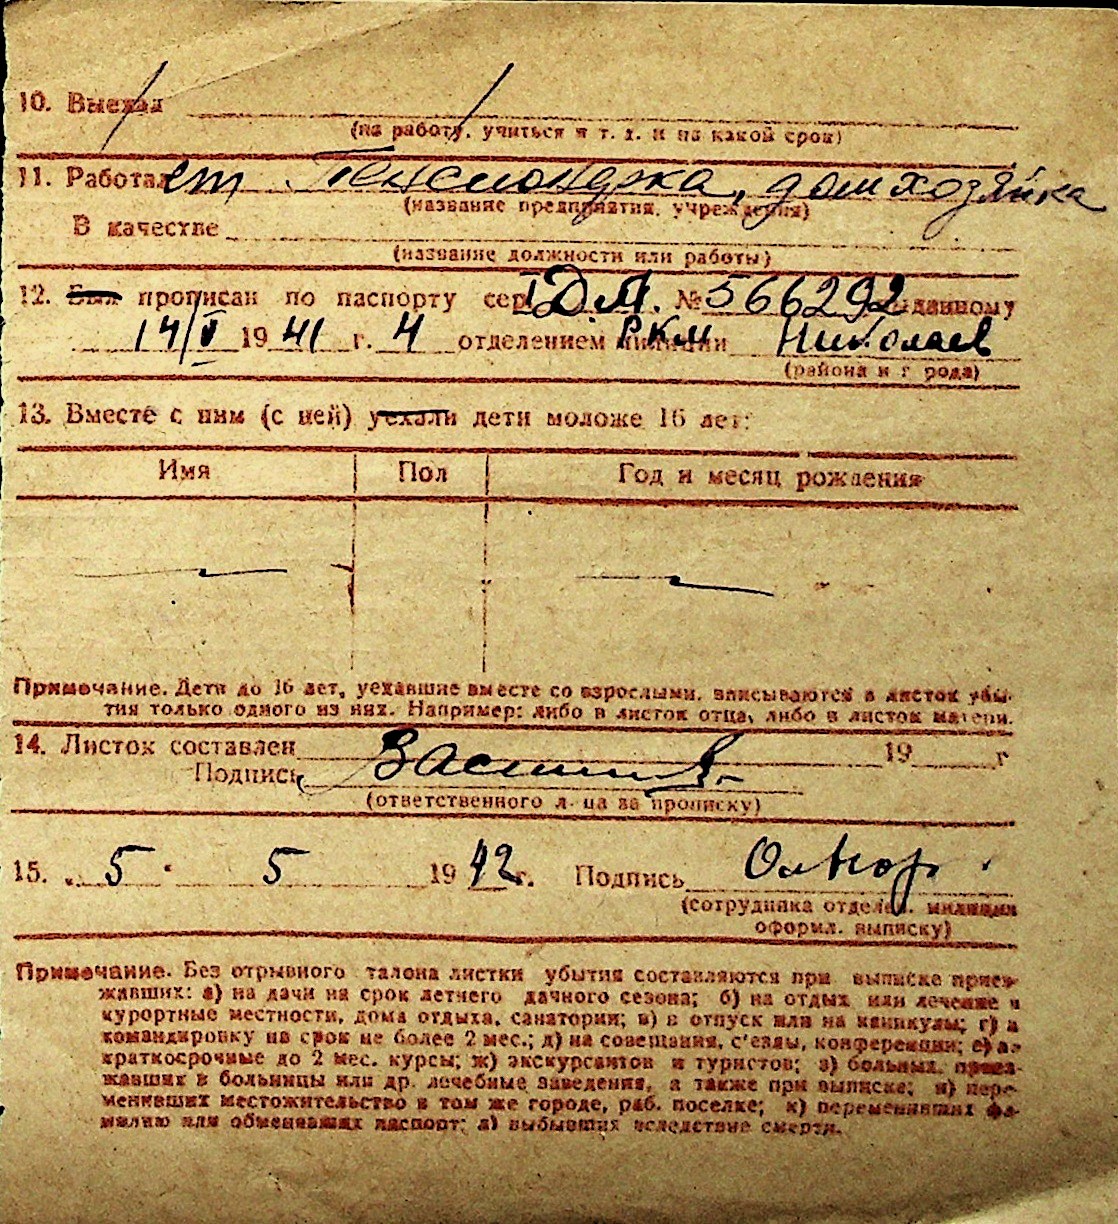 10. Выехал
(на работу, учиться и т. д. и на какой срок)
11. Работает Пенсионерка, домхозяйка
(название предприятия, учреждения)
В качестве
(название должности или работы)
12. Был прописан по паспорту сер. № 566292 выданному
14/V 1941 г. 4 отделением РКМ милиции Николаев
(района и города)
13. Вместе с ним (с ней) уехали дети моложе 16 лет:
Имя Пол Год и месяц рождения
Примечание. Дети до 16 лет, уехавшие вместе со взрослыми, вписываются в листок убы-
тия только одного из них. Например: либо в листок отца, либо в листок матери.
14. Листок составлен 19 г
Подпись
(ответственного лица за прописку)
15. „ 5 " 5 1942 г. Подпись
(сотрудника отделен. милиции
оформ. выписку)
Примечание. Без отрывного талона листки убытия составляются при выписке приез-
жавших: а) на дачи на срок летнего дачного сезона; б) на отдых или лечение в
курортные местности, дома отдыха, санатории; в) в отпуск или на каникулы; г) в
командировку на срок не более 2 мес.; д) на совещания, с'езды, конференции; е) на
краткосрочные до 2 мес. курсы; ж) экскурсантов и туристов; з) больных, приез-
жавших в больницы или др. лечебные заведения, а также при выписке; и) пере-
менивших местожительство в том же городе, раб. поселке; к) переменивших фа-
милию или обменявших паспорт; л) выбывших вследствие смерти.